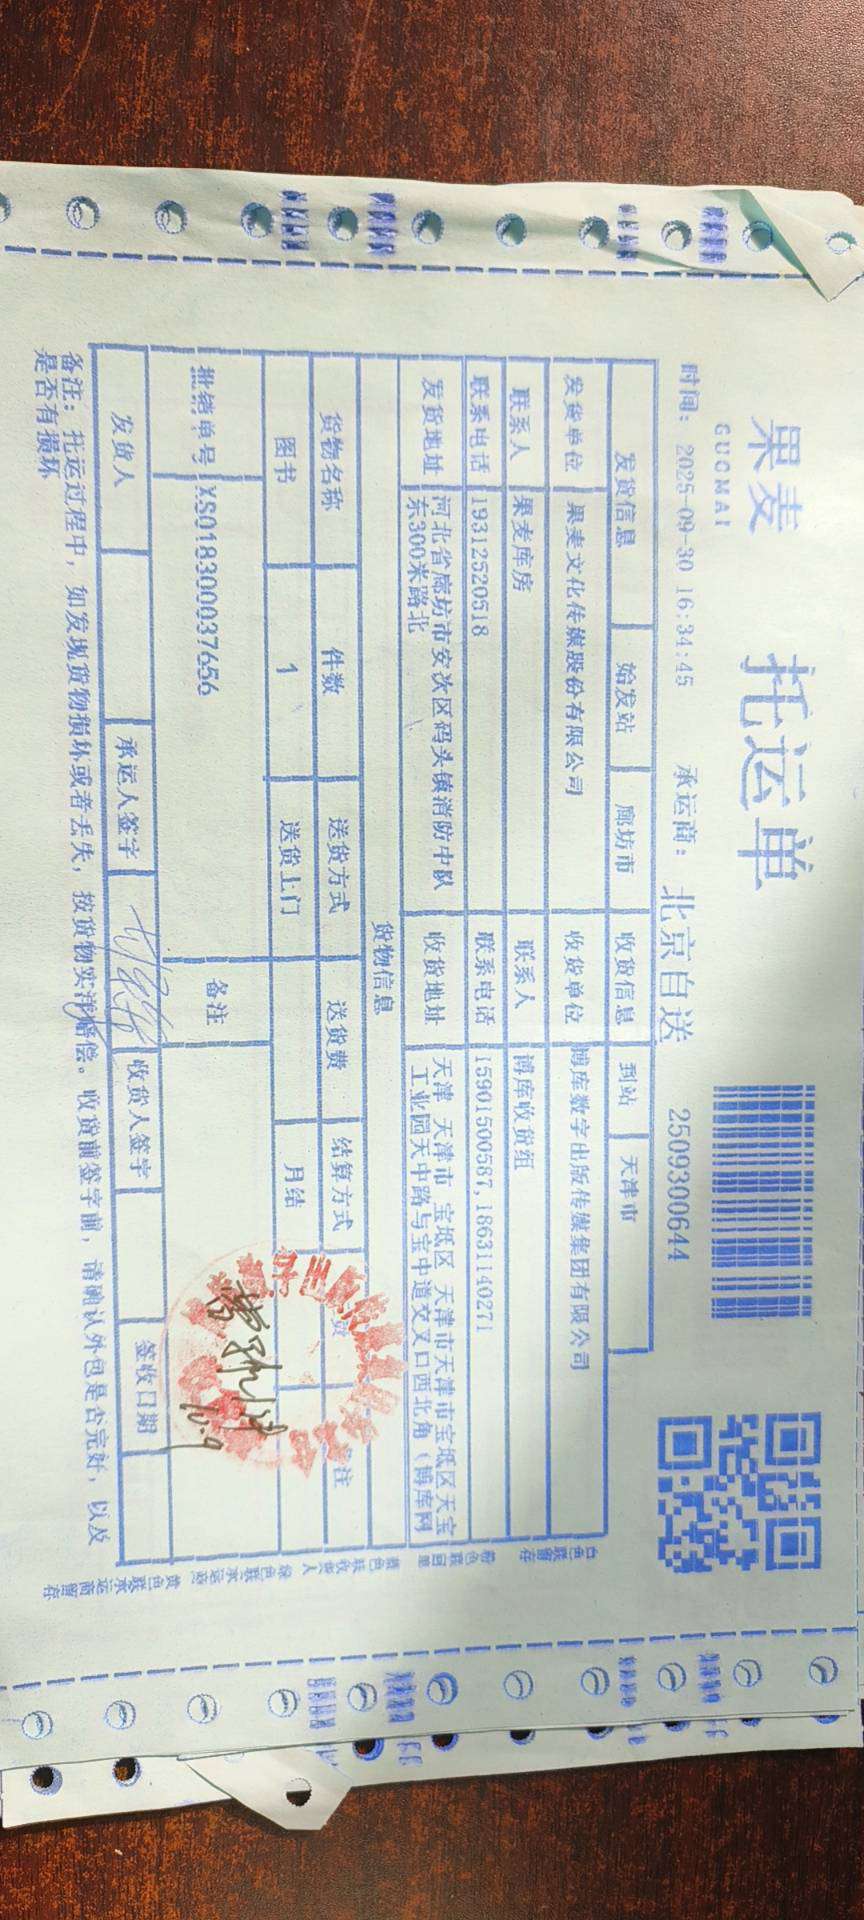 果麦
GUOMAI
托运单
时间: 2025-09-30 16:34:45 承运商: 北京自送 2509300644
发货信息 始发站 廊坊市 收货信息 到站 天津市
发货单位 果麦文化传媒股份有限公司 收货单位 博库数字出版传媒集团有限公司
联系人 果麦库房 联系人 博库收货组
联系电话 19312520518 联系电话 15901500587,18631140271
发货地址 河北省廊坊市安次区码头镇消防中队
东300米路北
收货地址 天津 天津市 宝坻区 天津市天津市宝坻区天宝
工业园天中路与宝中道交叉口西北角(博库网
货物信息
货物名称 件数 送货方式 送货费 结算方式 注
图书 1 送货上门 月结
批销单号 XS018300037656 备注
10.9
发货人 承运人签字 收货人签字 签收日期
备注: 托运过程中, 如发现货物损坏或者丢失, 按货物实洋赔偿。收货前签字前, 请确认外包是否完好, 以及
是否有损坏